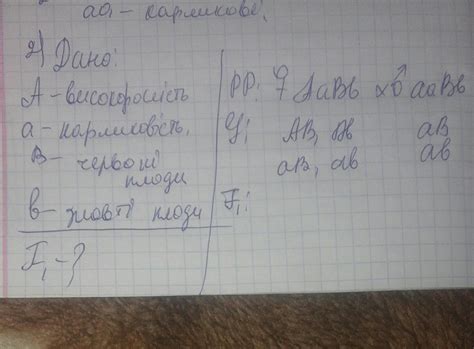 аа - карликові.
2) Дано:
А - високорослість
а - карликовість.
В - червоні
плоди
в - жовті плоди
F₁ - ?
РР: ♀ АаВв х ♂ ааВв
G: АВ, Ав аВ
аВ, ав ав
F₁: